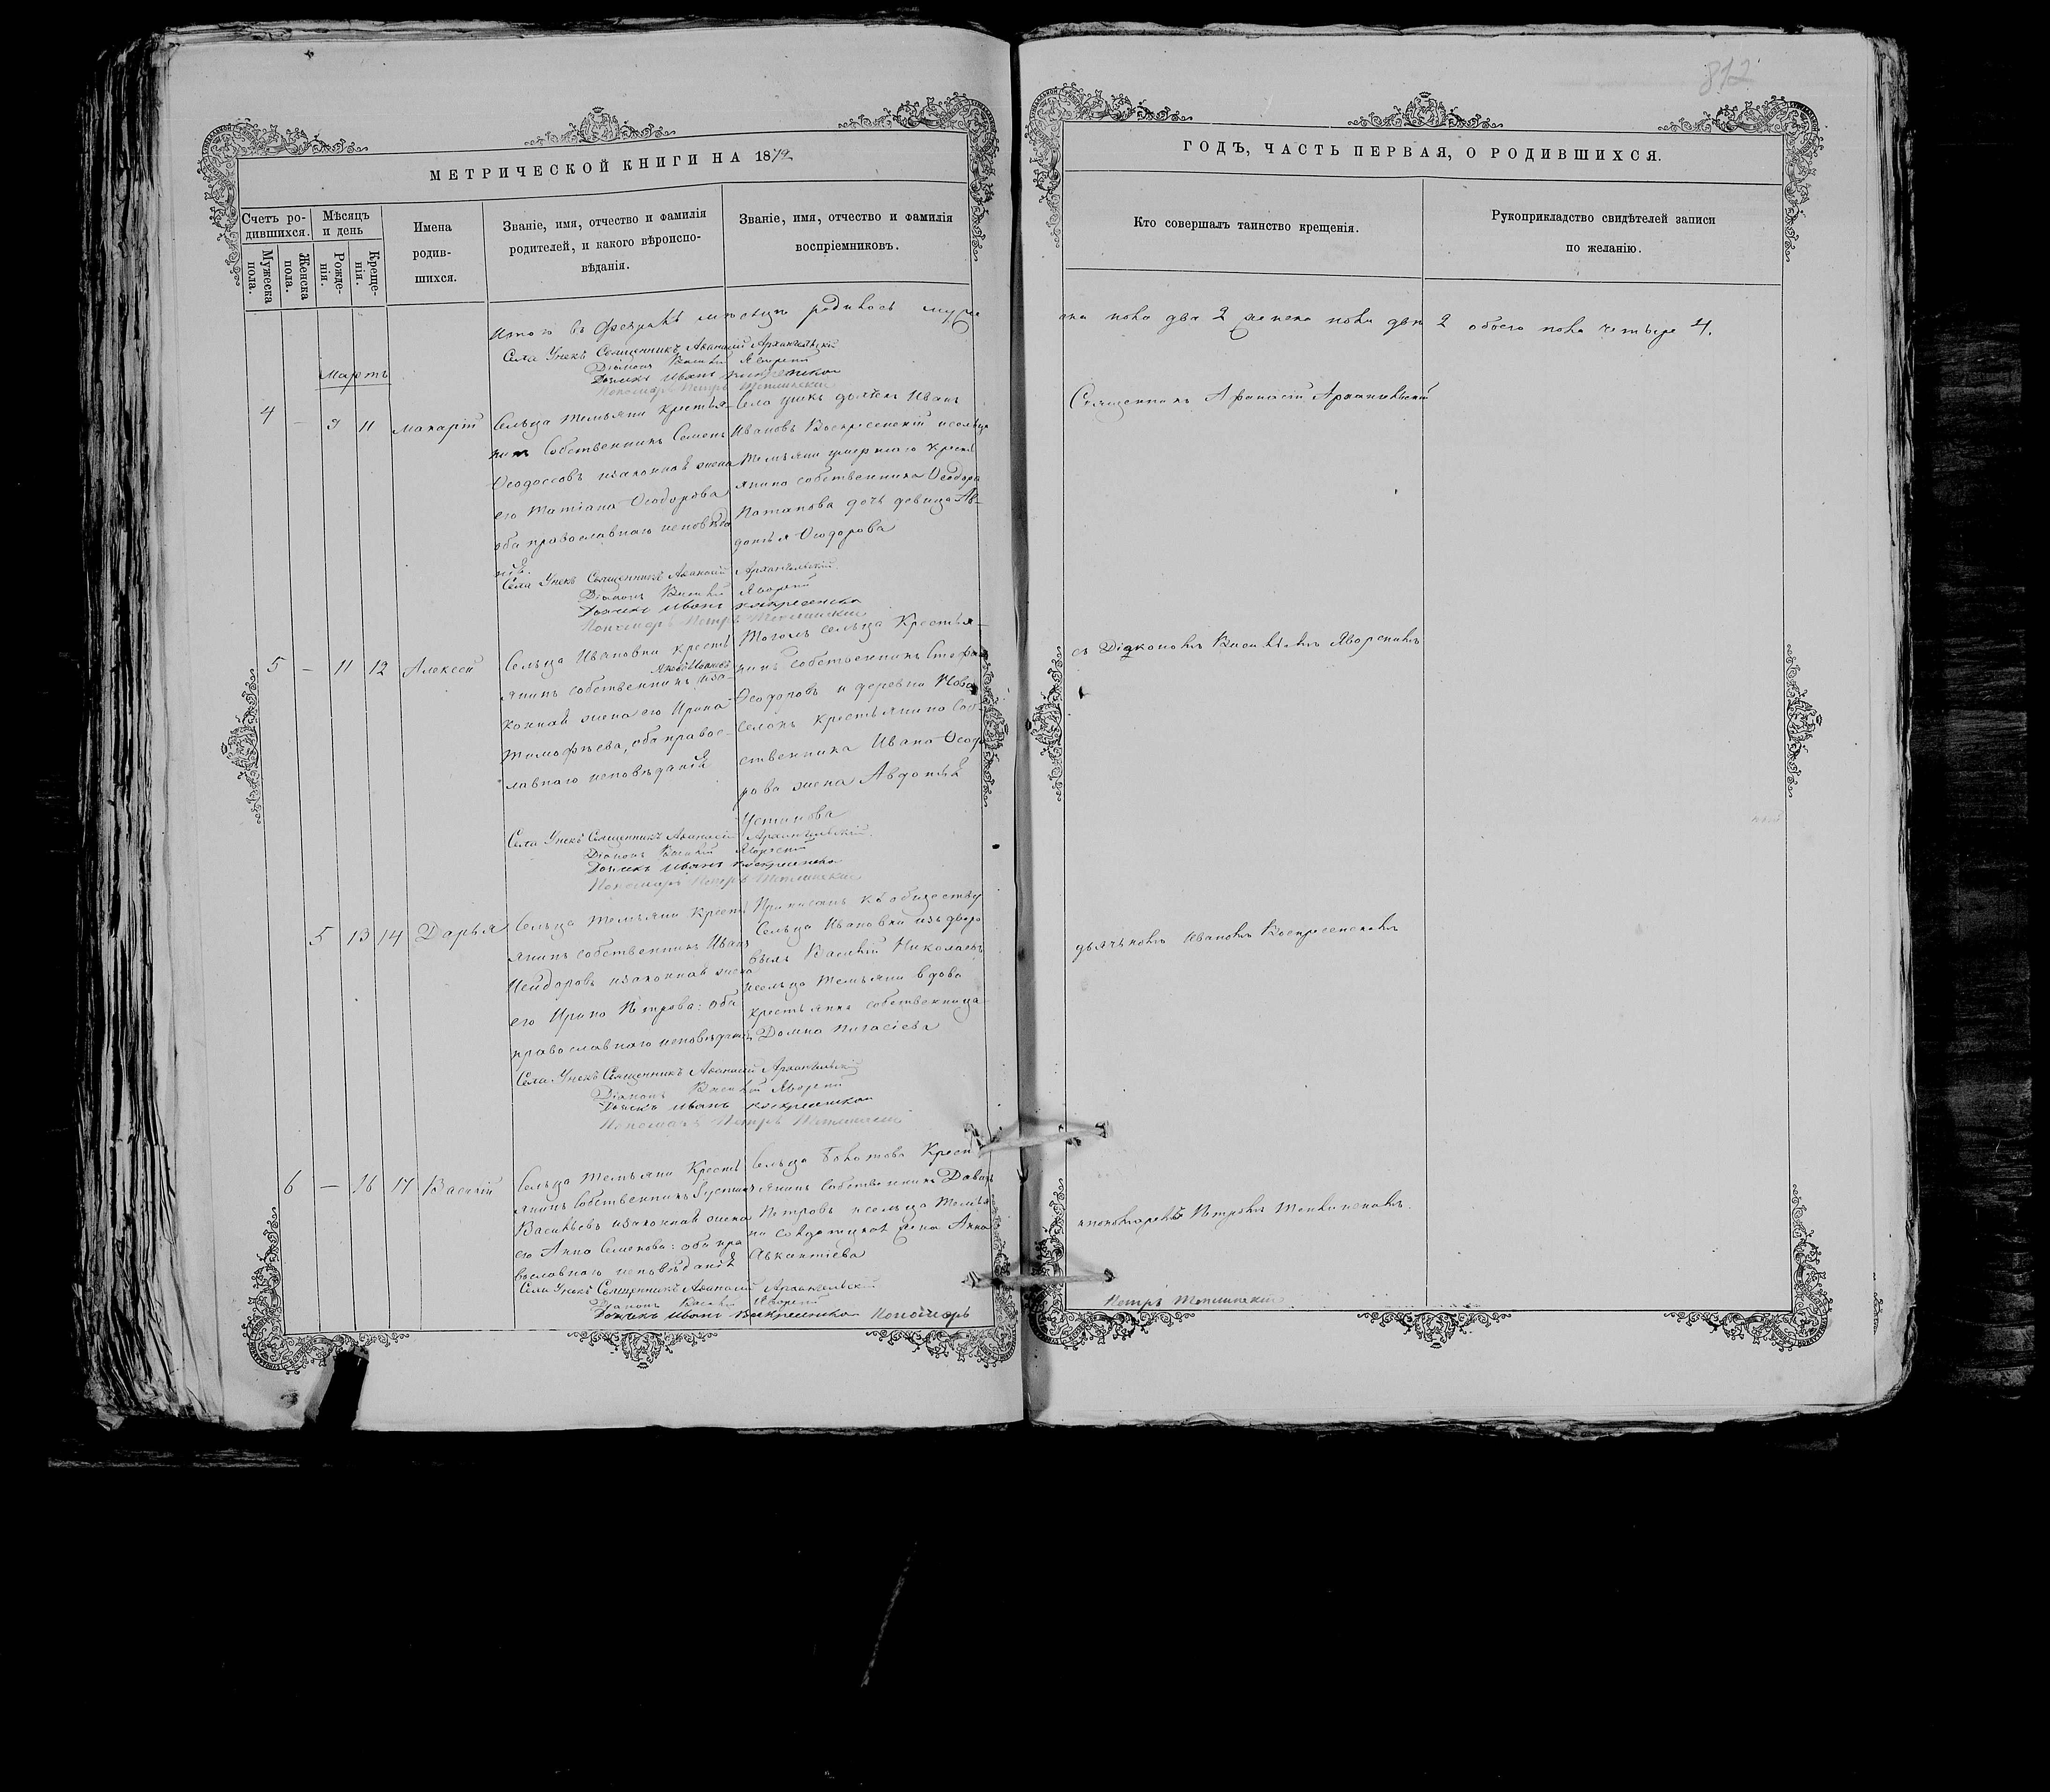 812
МЕТРИЧЕСКОЙ КНИГИ НА 1872
ГОДЪ, ЧАСТЬ ПЕРВАЯ, О РОДИВШИХСЯ.
Счетъ ро-
дившихся.
Мужеска
пола.
Женска
пола.
Мѣсяцъ
и день
Рожде-
нія.
Креще-
нія.
Имена
родив-
шихся.
Званіе, имя, отчество и фамилія
родителей, и какого вѣроиспо-
вѣданія.
Званіе, имя, отчество и фамилія
воспріемниковъ.
Кто совершалъ таинство крещенія.
Рукоприкладство свидѣтелей записи
по желанію.
Итого въ Февралѣ мѣсяцѣ родилось муже
ска пола два 2 женска пола двѣ 2 обоего пола четыре 4.
Села Унекъ Священникъ Аѳанасій Архангельскій
Діаконъ Василій
Дьячекъ Иванъ
Пономарь Петръ
Мартъ
4 – 9 11 Макарій
Сельца Темьяни крестья-
нинъ Собственникъ Семенъ
Ѳеодосовъ изаконная жена
его Татіана Ѳеодорова
оба православнаго исповѣда
нія.
Села Унекъ дьячекъ Иванъ
Ивановъ Воскресенскій исельца
Темьяни умершаго крестья
янина собственника Ѳеодора
Потапова дочь девица Ав-
дотья Ѳеодорова
Священникъ Афанасій Архангельскій
Села Унекъ Священникъ Аѳанасій Архангельскій
Діаконъ Василій Яворскій
Дьячекъ Иванъ Воскресенской
Пономарь Петръ
5 – 11 12 Алексей
Сельца Ивановки кресть
янинъ собственникъ иза-
конная жена его Ирина
Тимофѣева, оба правос-
лавнаго исповѣданія
Тогожъ сельца Крестья-
нинъ собственникъ Стефанъ
Ѳеодоровъ и деревни Ново
селокъ крестьянина Соб-
ственника Ивана Ѳеодо
рова жена Авдотья
Устинова
съ Діакономъ Василіемъ Яворскимъ
Села Унекъ Священникъ Аѳанасій Архангельскій
Діаконъ Василій Яворскій
Дьячекъ Иванъ Воскресенской
Пономарь Петръ
5 13 14 Дарья
Сельца Темьяни кресть
янинъ собственникъ Иванъ
Исидоровъ изаконная жена
его Ирина Петрова: оба
православнаго исповѣданія
Приписанъ къ обществу
Сельца Ивановки изъ дворо
выхъ Василій Николаевъ
исельца Темьяни вдова
крестьянка собственница
Домна
дьячькомъ Иваномъ Воскресенскимъ
Села Унекъ Священникъ Аѳанасій Архангельскій
Діаконъ Василій Яворскій
Дьячекъ Иванъ Воскресенской
Пономарь Петръ
6 – 16 17 Василій
Сельца Темьяни Кресть
янинъ Собственникъ
Васильевъ изаконная жена
его Анна Семенова: оба пра
вославнаго исповѣданія
Сельца Кресть
янинъ Собственникъ Давыдъ
Петровъ исельца Темья
ни солдатская жена Анна
ипономаремъ Петромъ
Села Унекъ Священникъ Аѳанасій Архангельскій
Діаконъ Василій Яворскій
Дьячекъ Иванъ Воскресенской Пономарь
Петръ